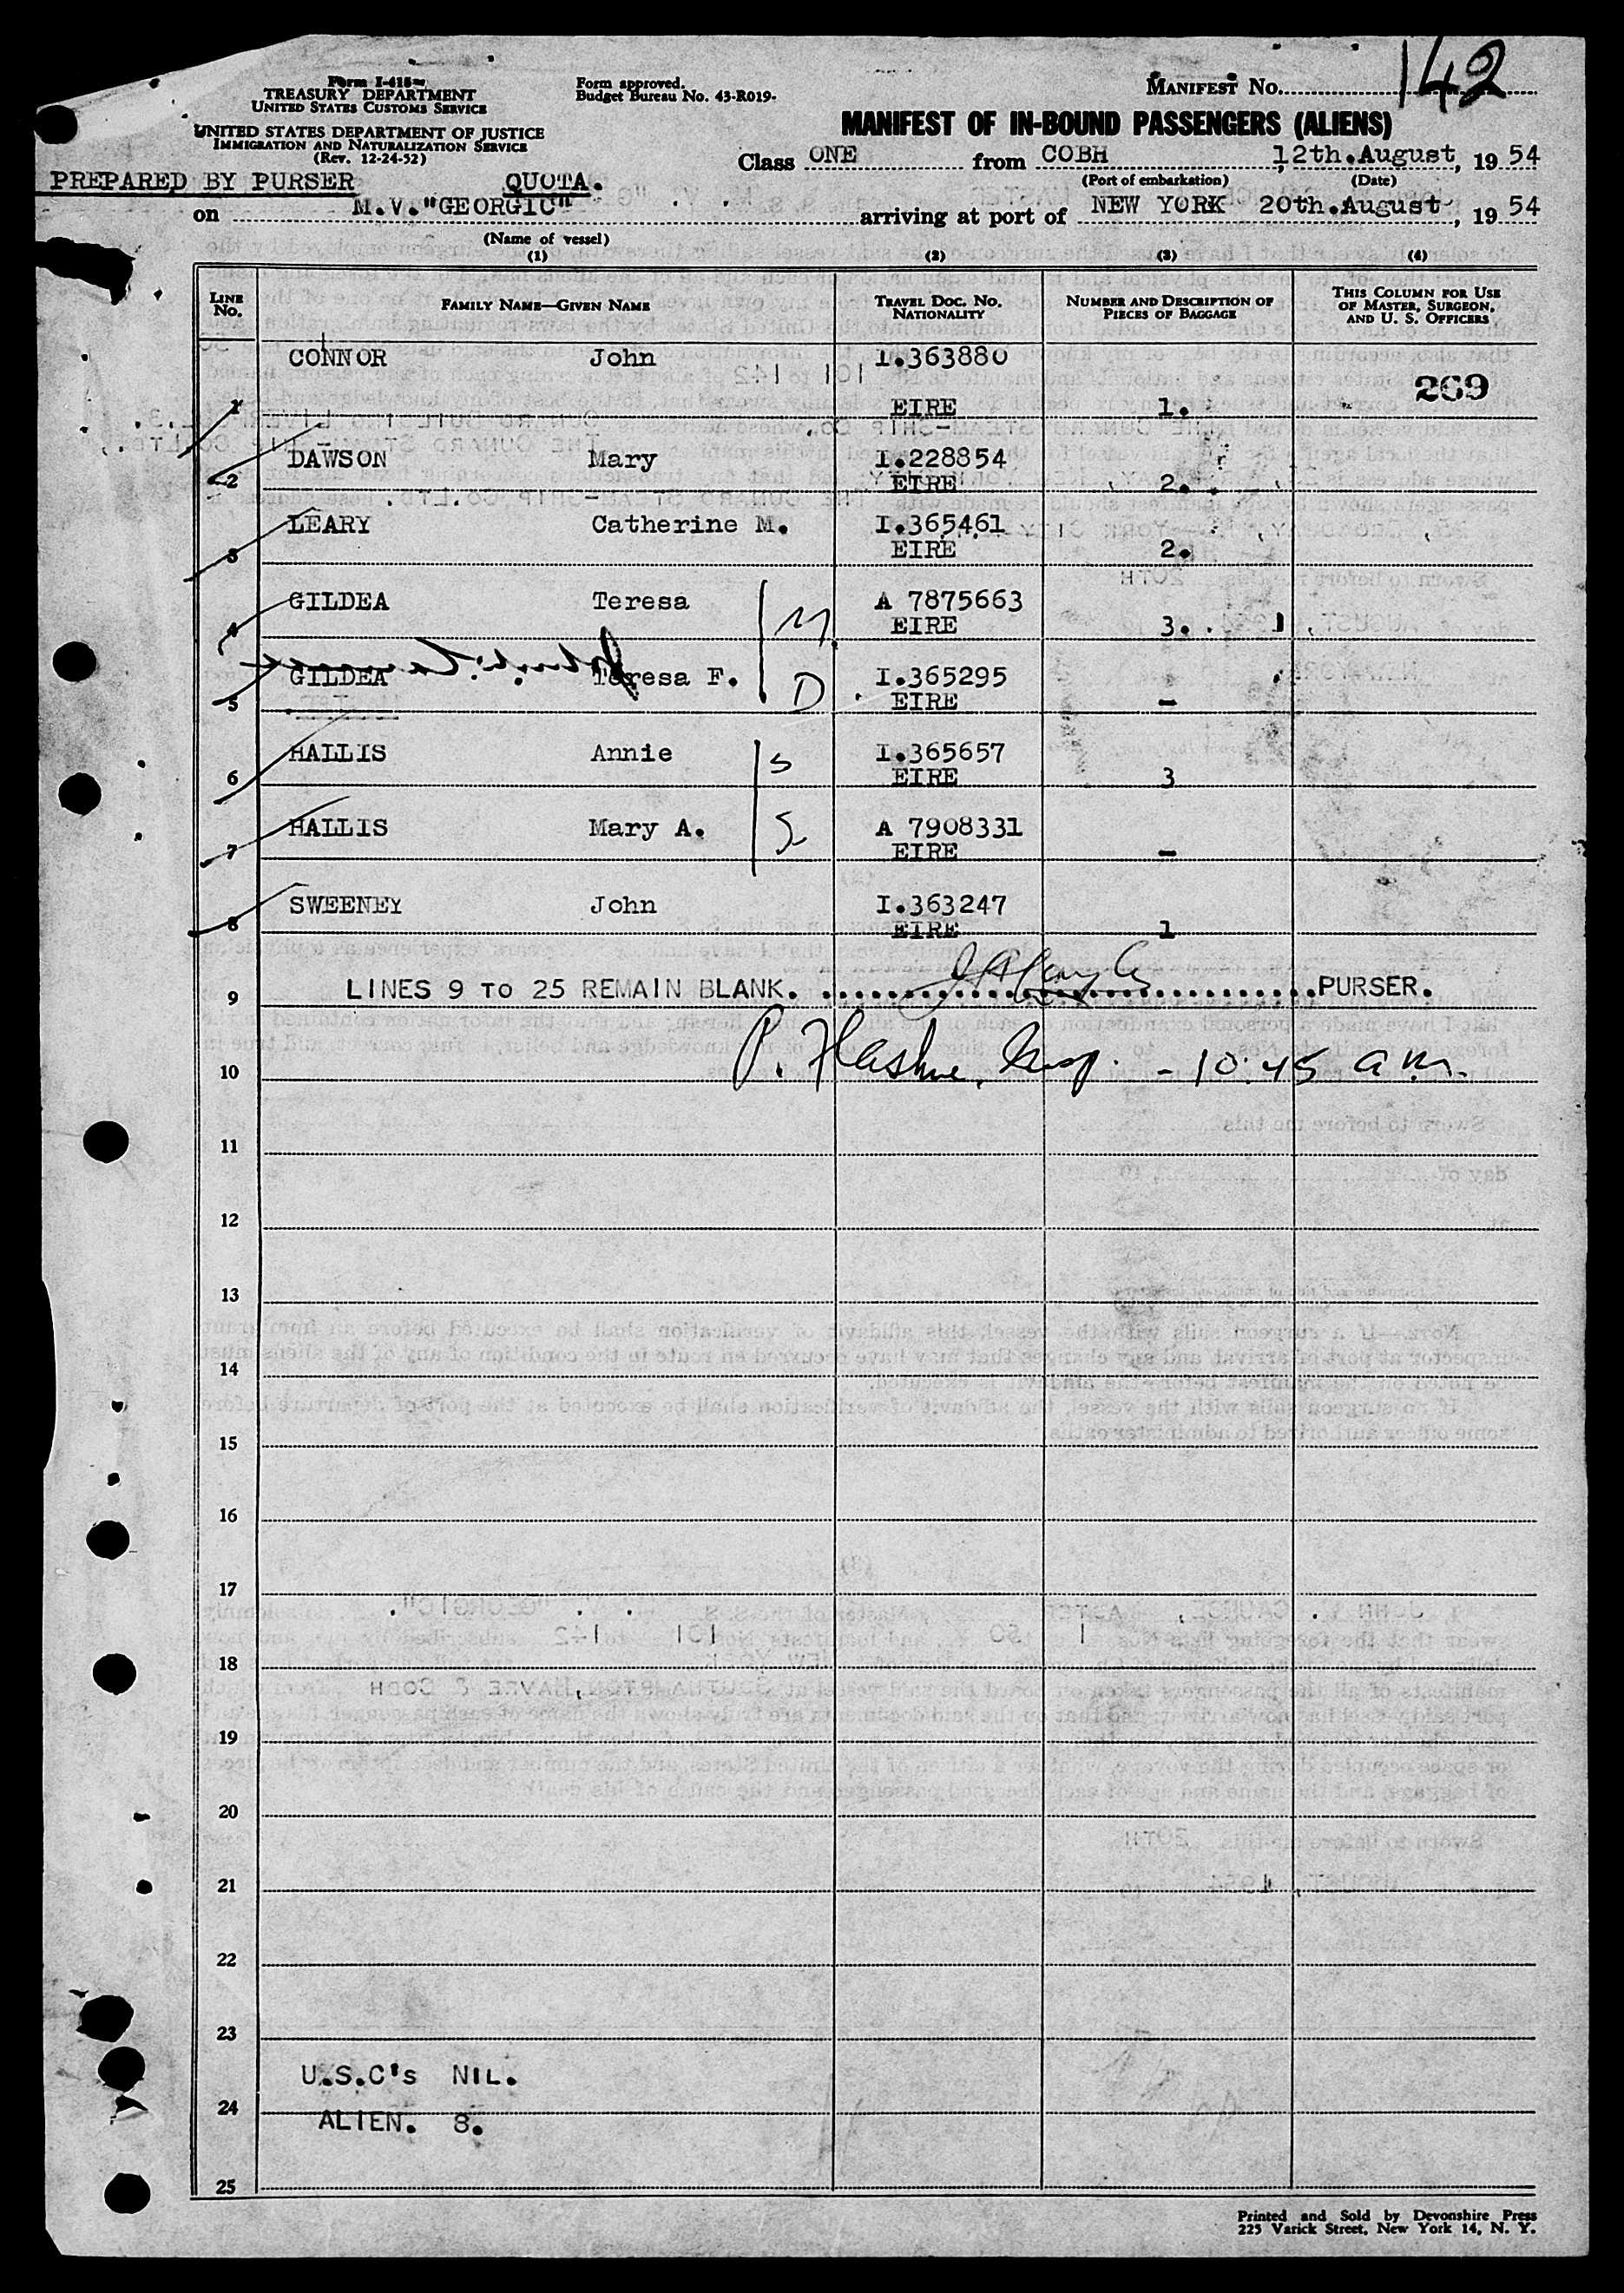 Form I-418
TREASURY DEPARTMENT
UNITED STATES CUSTOMS SERVICE
UNITED STATES DEPARTMENT OF JUSTICE
IMMIGRATION AND NATURALIZATION SERVICE
(Rev. 12-24-52)
Form approved.
Budget Bureau No. 43-R019.
MANIFEST No. 142
MANIFEST OF IN-BOUND PASSENGERS (ALIENS)
Class ONE from COBH, 12th.August, 19 54
(Port of embarkation) (Date)
PREPARED BY PURSER QUOTA.
on M.V."GEORGIC" arriving at port of NEW YORK 20th.August, 19 54
(Name of vessel)
(1) (2) (3) (4)
LINE No. FAMILY NAME—GIVEN NAME TRAVEL DOC. NO. NATIONALITY NUMBER AND DESCRIPTION OF PIECES OF BAGGAGE THIS COLUMN FOR USE OF MASTER, SURGEON, AND U. S. OFFICERS
CONNOR John I.363880
269
1 EIRE 1.
DAWSON Mary I.228854
2 EIRE 2.
LEARY Catherine M. I.365461
3 EIRE 2.
GILDEA Teresa M A 7875663
4 EIRE 3.
GILDEA Teresa F. D I.365295
5 EIRE -
HALLIS Annie S I.365657
6 EIRE 3
HALLIS Mary A. S A 7908331
7 EIRE -
SWEENEY John I.363247
8 EIRE 1
9 LINES 9 TO 25 REMAIN BLANK. PURSER.
10 - 10:45 a m.
11
12
13
14
15
16
17
18
19
20
21
22
23
U.S.C's NIL.
24
ALIEN. 8.
25
Printed and Sold by Devonshire Press
225 Varick Street, New York 14, N. Y.